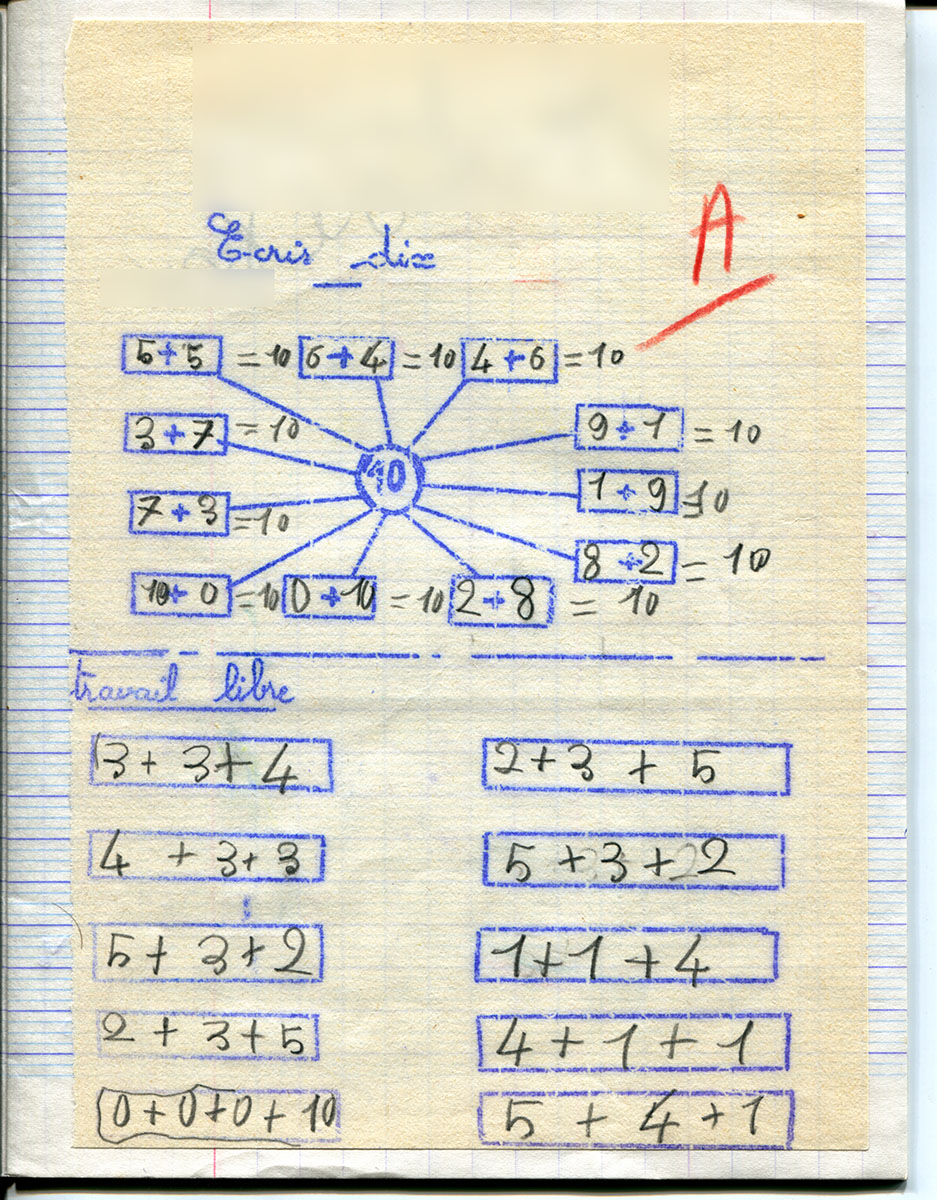 Ecris dix
A
5+5 = 10 6+4 = 10 4+6 = 10
3+7 = 10 9+1 = 10
10
7+3 = 10 1+9 = 10
8+2 = 10
10+0 = 10 0+10 = 10 2+8 = 10
travail libre
3+3+4 2+3+5
4+3+3 5+3+2
5+3+2 1+1+4
2+3+5 4+1+1
0+0+0+10 5+4+1